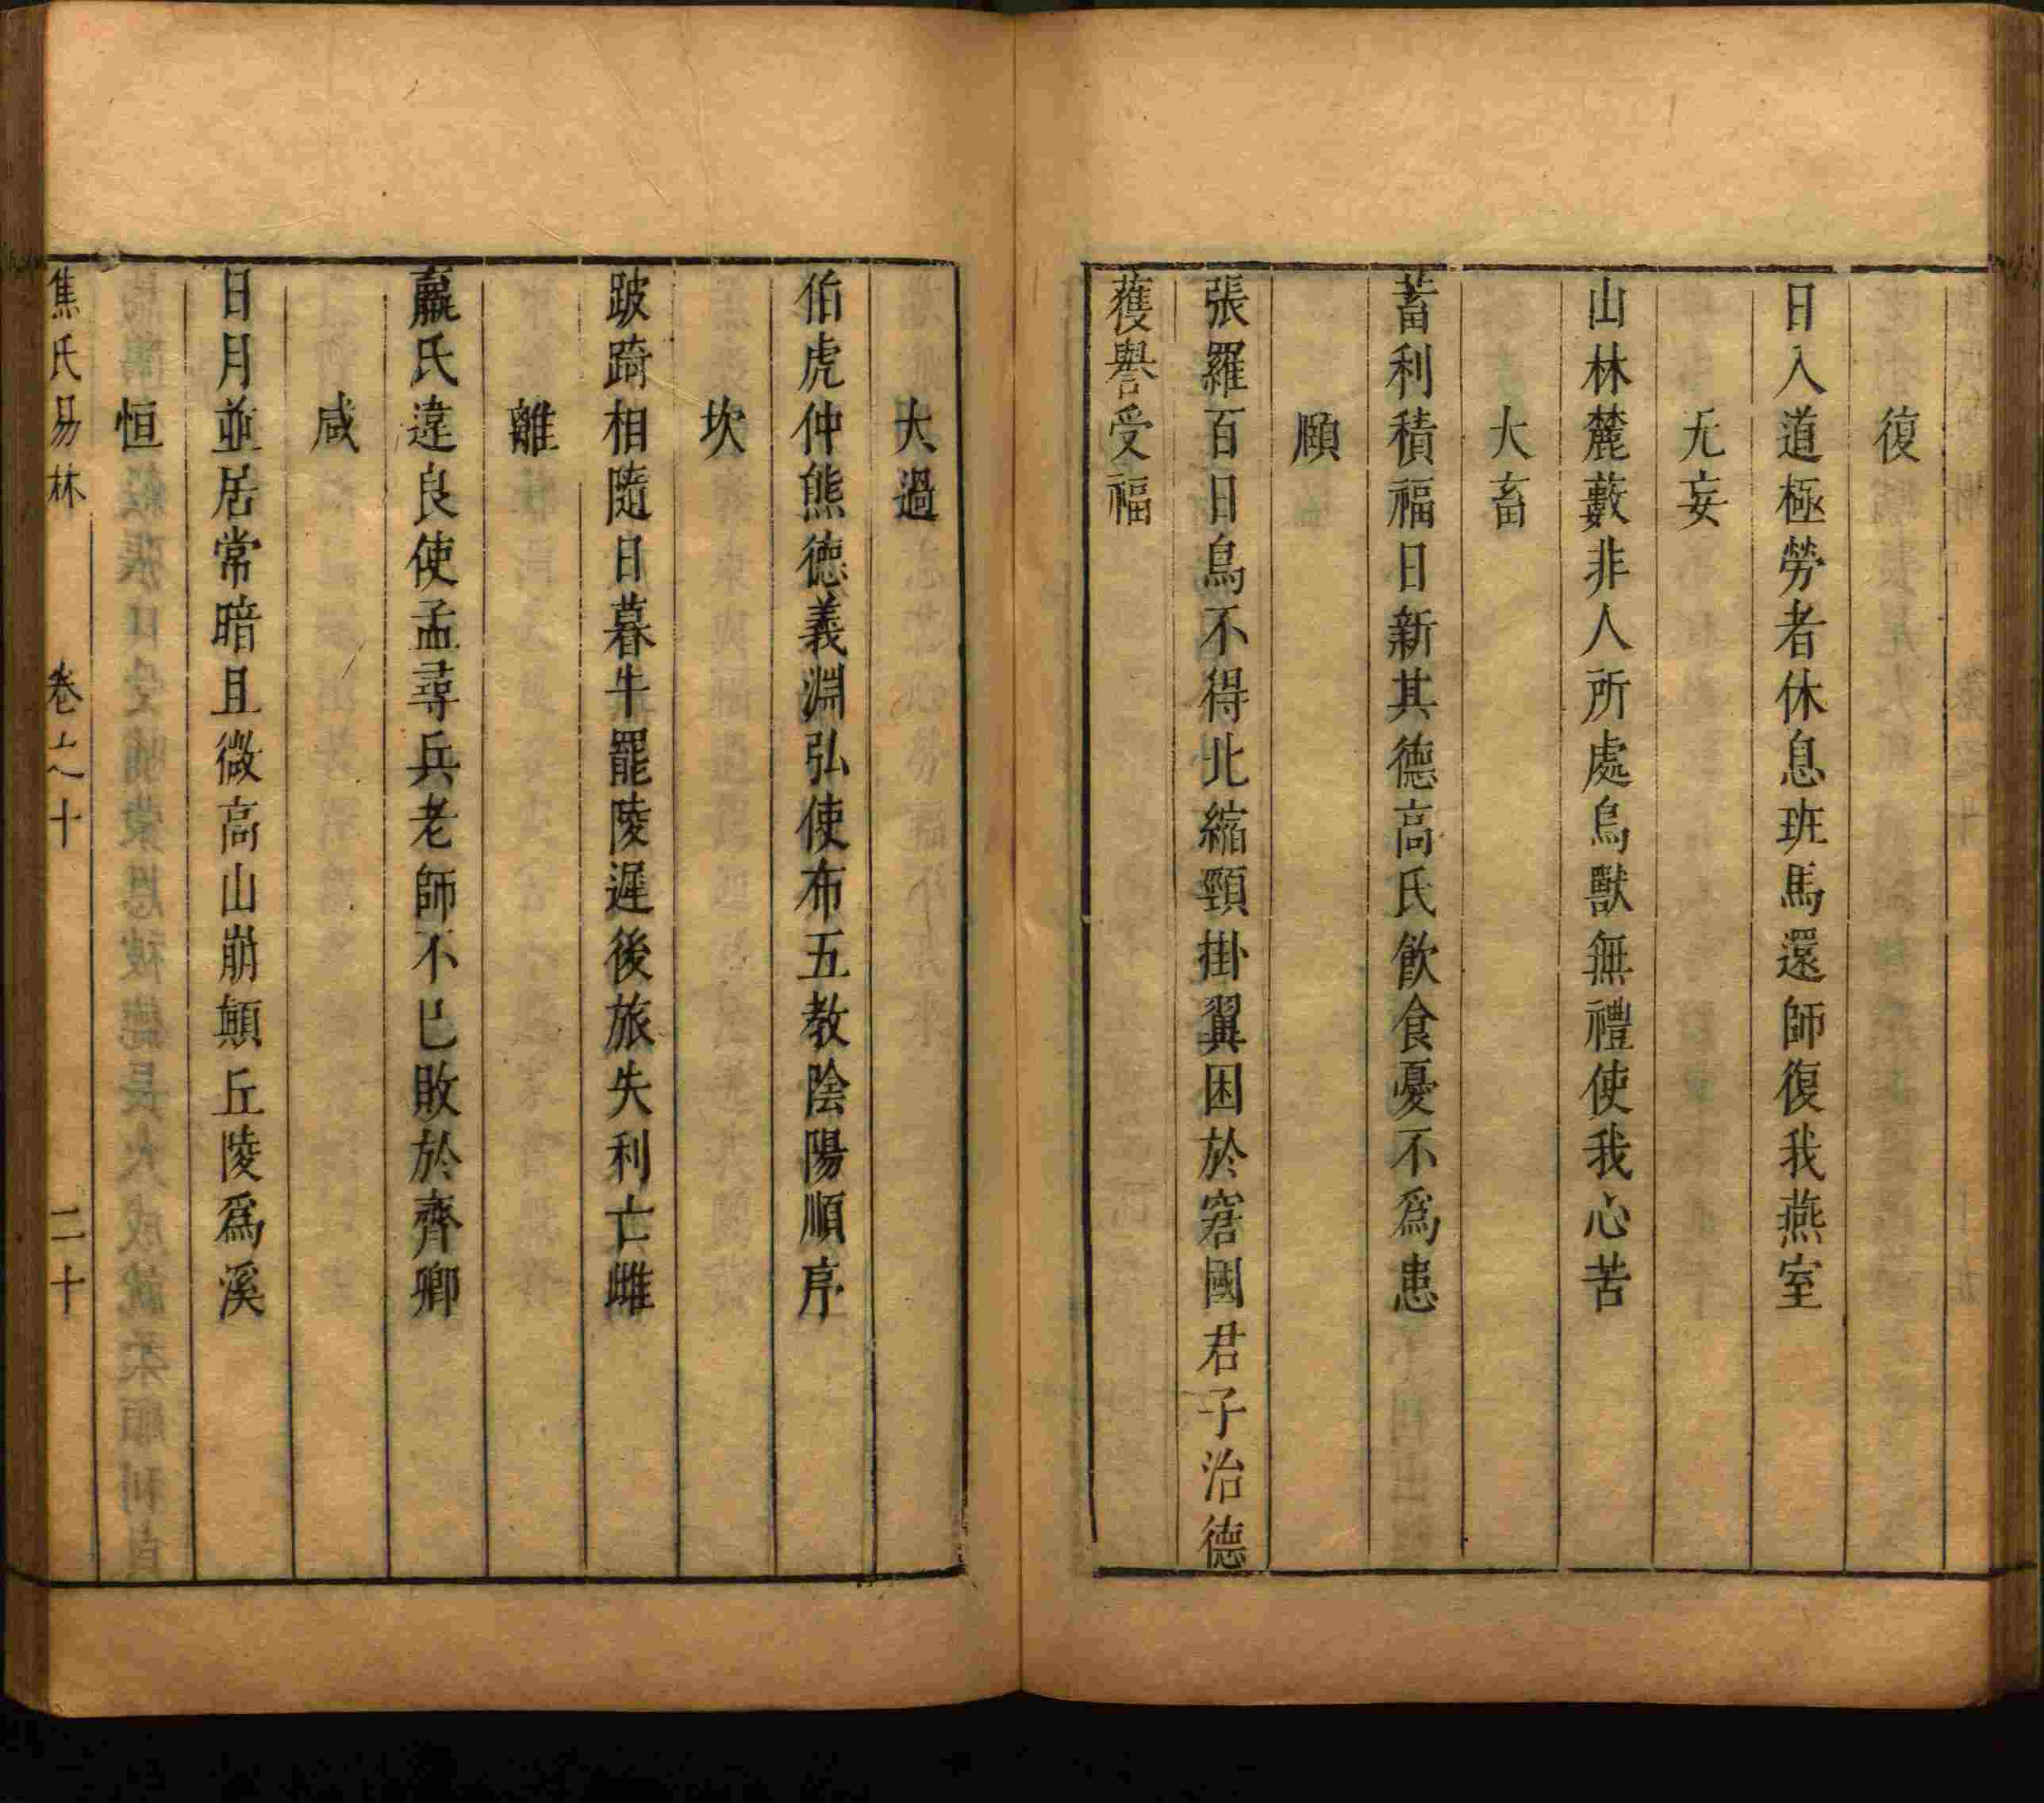 復
日入道極勞者休息班馬還師復我燕室
无妄
山林麓藪非人所處鳥獸無禮使我心苦
大畜
蓄利積福日新其德高氏飲食憂不為患
頤
張羅百日鳥不得北縮頸掛翼困於窘國君子治德
獲譽受福
大過
伯虎仲熊德義淵弘使布五教陰陽順序
坎
跛踦相隨日暮牛罷陵遲後旅失利亡雌
離
嬴氏違良使孟尋兵老師不已敗於齊卿
咸
日月並居常暗且微高山崩顛丘陵爲溪
恒
焦氏易林 卷之十 二十